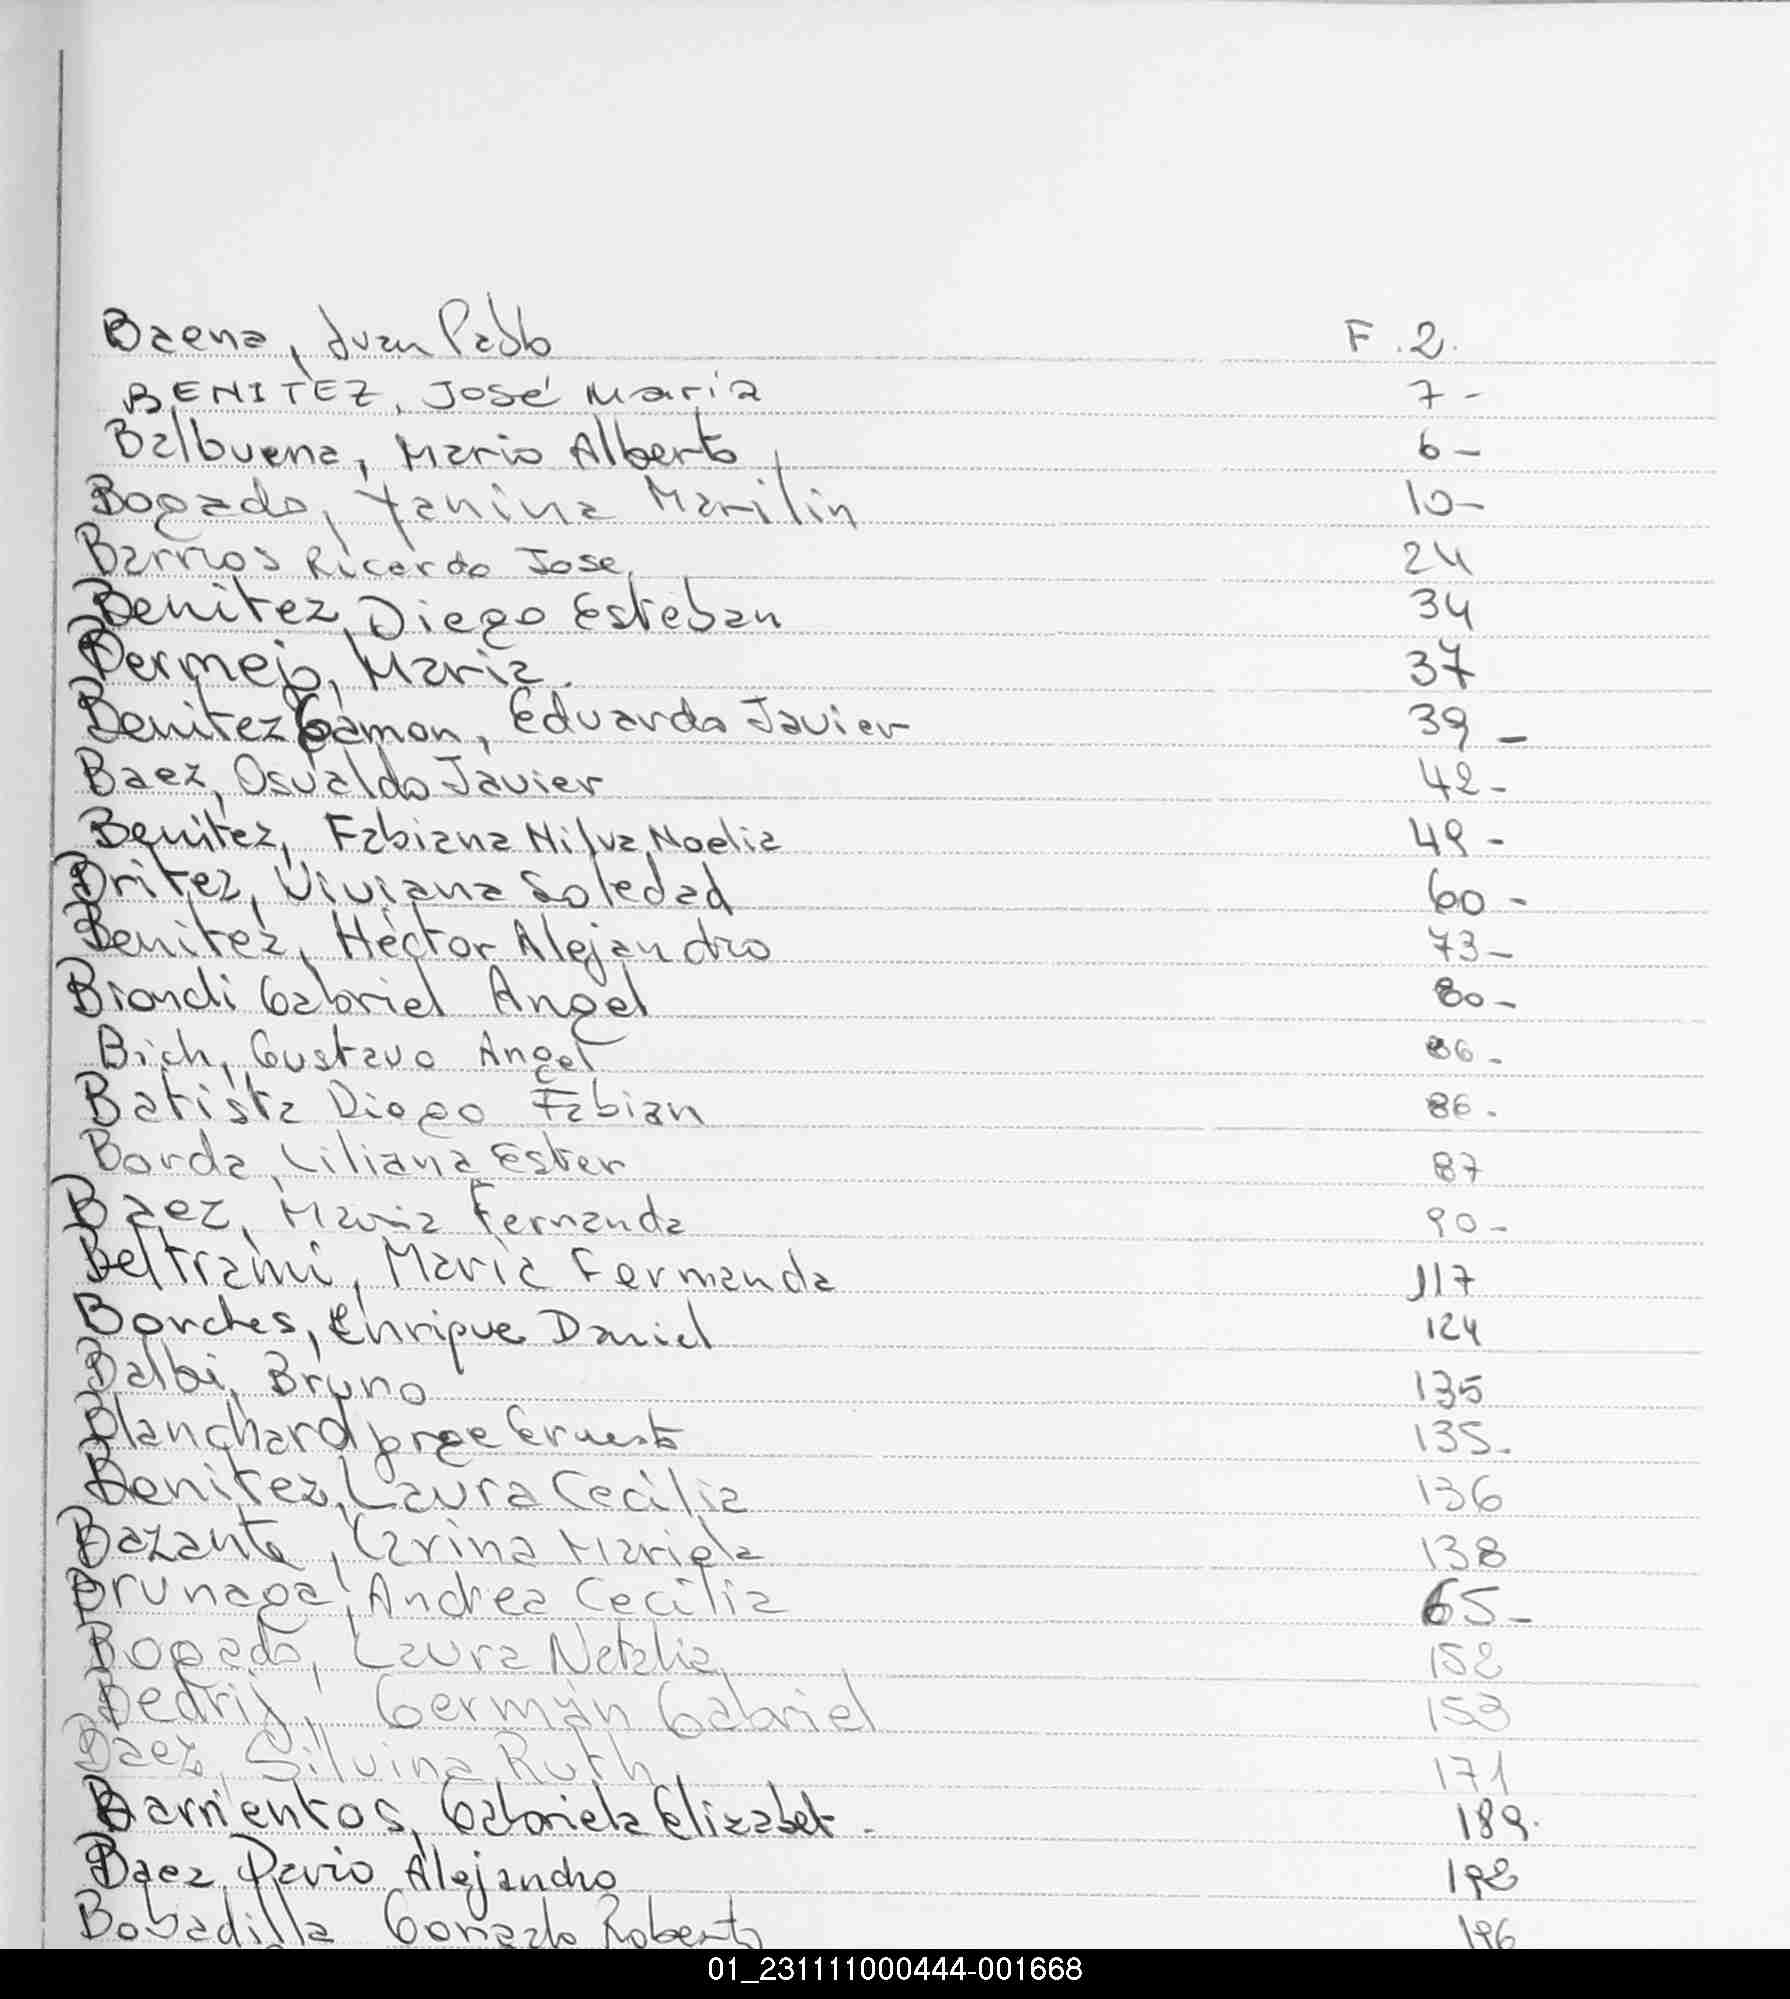 Baena, Juan Pablo F. 2.
BENITEZ, José Maria 7-
Balbuena, Mario Alberto 6-
Bogado, Yanina Marilin 10-
Barrios Ricardo Jose, 24
Benitez, Diego Esteban 34
Bermejo, Maria. 37
Benitez Gamon, Eduardo Javier 39-
Baez, Osvaldo Javier 42-
Benitez, Fabiana Nilva Noelia 49-
Britez, Viviana Soledad 60-
Benitez, Héctor Alejandro 73-
Biondi Gabriel Angel 80-
Bich, Gustavo Angel 86-
Batista Diego Fabian 86.
Borda, Liliana Ester 87
Baez, Maria Fernanda 90-
Beltrami, Maria Fernanda 117
Borches, Enrique Daniel 124
Balbi, Bruno 135
Blanchard Jorge Ernesto 135.
Benitez, Laura Cecilia 136
Bazante, Carina Mariela 138
Brunaga, Andrea Cecilia 65-
Bogado, Laura Natalia, 152
Bedrij, Germán Gabriel 153
Baez, Silvina Ruth 171
Barrientos, Gabriela Elizabet. 189.
Baez, Dario Alejandro 192
Bobadilla Gonzalo Roberto 196
01_231111000444-001668